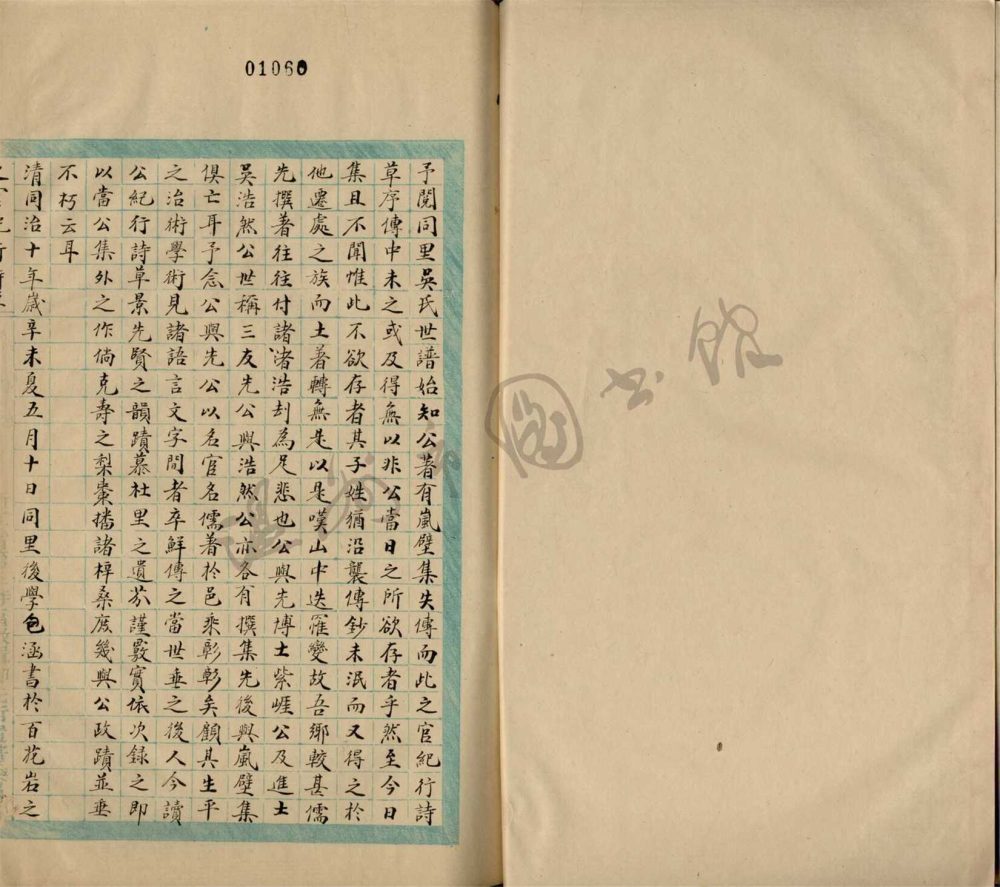 01060
予閱同里吳氏世譜始知公著有嵐壁集失傳而此之官紀行詩
草序傳中未之或及得無以非公當日之所欲存者乎然至今日
集且不聞惟此不欲存者其子姓猶沿襲傳鈔未泯而又得之於
他遷處之族而土著轉無是以是嘆山中迭罹變故吾鄉較甚儒
先撰著往往付諸浩刦為足悲也公與先博士紫崕公及進士
吳浩然公世稱三友先公與浩然公亦各有撰集先後與嵐壁集
俱亡耳予念公與先公以名官名儒著於邑乘彰彰矣顧其生平
之治術學術見諸語言文字間者卒鮮傳之當世垂之後人今讀
公紀行詩草景先賢之韻蹟慕杜里之遺芬謹覈實依次錄之即
以當公集外之作倘克壽之梨棗播諸梓桑庶幾與公政蹟並垂
不朽云耳
清同治十年歲辛未夏五月十日同里後學包涵書於百花岩之
之官紀行詩
圖書館